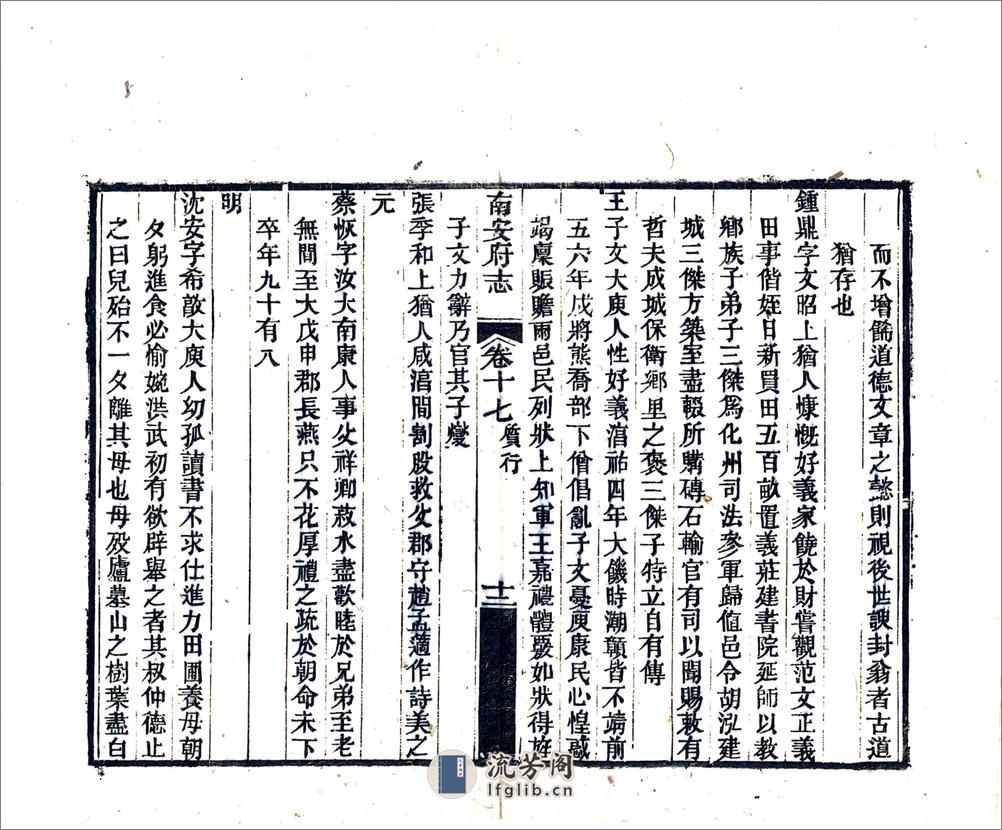 而不增儒道德文章之懿則視後世談封翁者古道
猶存也
鍾鼎字文昭上猶人慷慨好義家饒於財嘗觀范文正義
田事偕姪日新買田五百畝置義莊建書院延師以教
鄉族子弟子三傑為化州司法參軍歸值邑令胡泓建
城三傑方築室盡輟所購磚石輸官有司以聞賜敕有
哲夫成城保衛鄉里之褒三傑子特立自有傳
王子文大庾人性好義淳祐四年大饑時潮贛皆不靖前
五六年戍將熊喬部下僧倡亂子文憂庾康民心惶惑
竭廩賑贍兩邑民列狀上知軍王嘉禮體覈如狀得旌
南安府志
卷十七 質行
十二
子文力辭乃官其子燮
張季和上猶人咸淳間割股救父郡守趙孟藡作詩美之
元
蔡恢字汝大南康人事父祥卿菽水盡歡睦於兄弟至老
無間至大戊申郡長燕只不花厚禮之疏於朝命未下
卒年九十有八
明
沈安字希敔大庾人幼孤讀書不求仕進力田圃養母朝
夕躬進食必愉婉洪武初有欲辟舉之者其叔仲德止
之曰兒殆不一夕離其母也母歿廬墓山之樹葉盡白
流芳阁
lfglib.cn